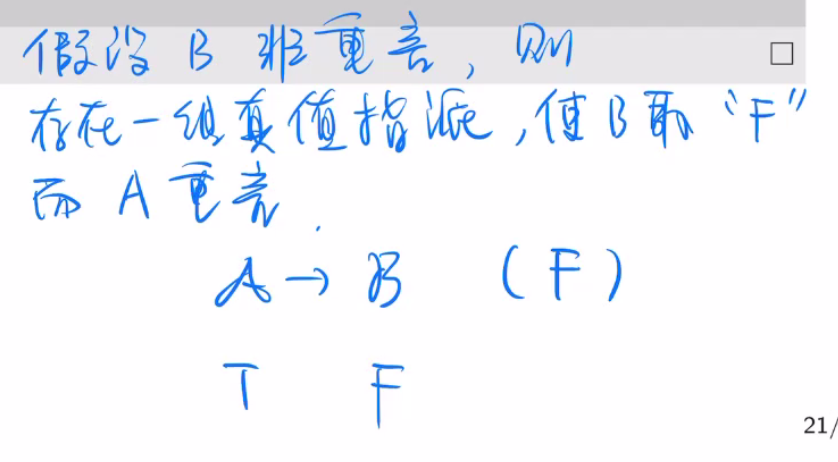 假设 B 非重言，则
存在一组真值指派，使B取“F”
而 A 重言.
A → B (F)
T F
21/